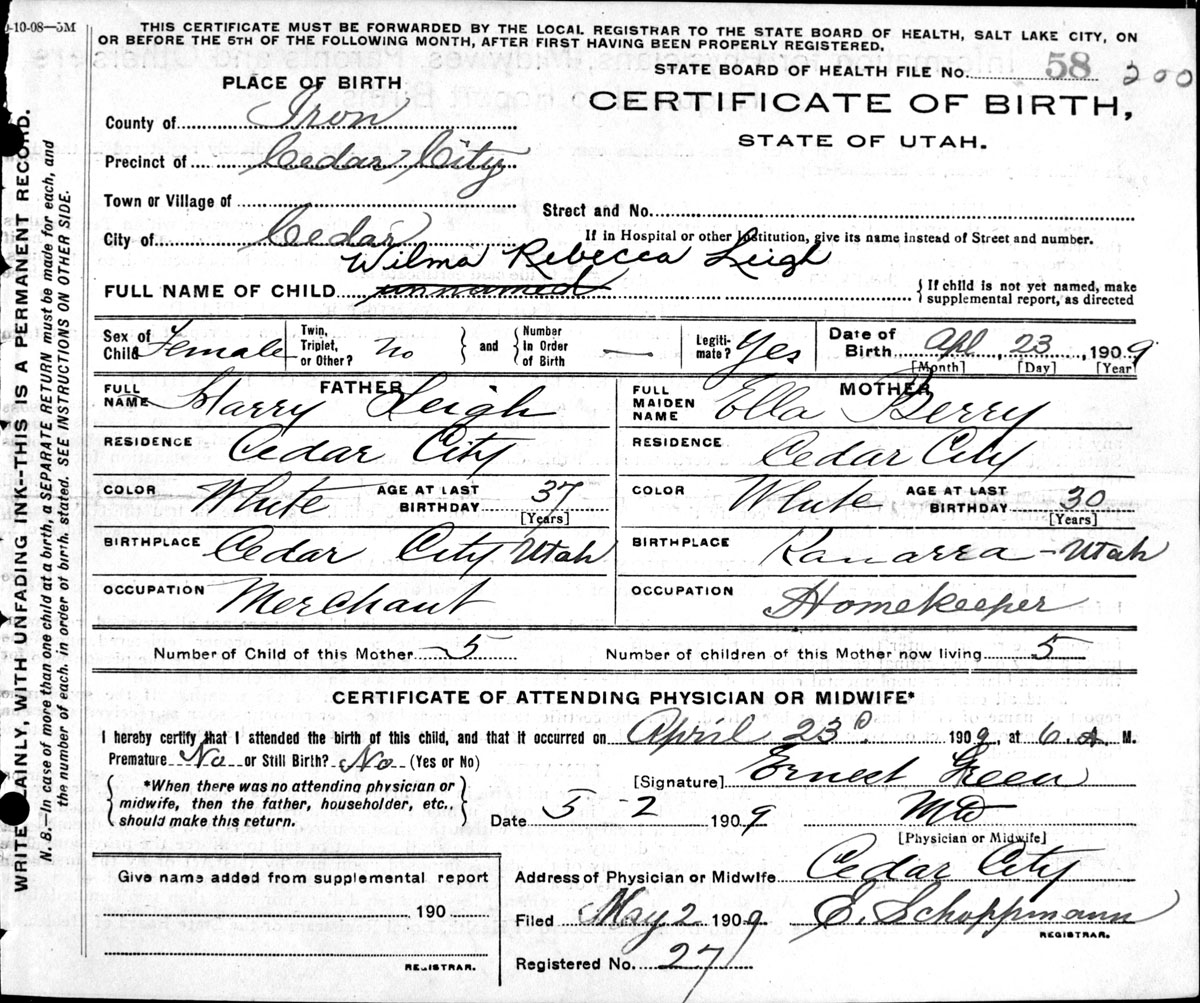 -10-08—5M
THIS CERTIFICATE MUST BE FORWARDED BY THE LOCAL REGISTRAR TO THE STATE BOARD OF HEALTH, SALT LAKE CITY, ON
OR BEFORE THE 5TH OF THE FOLLOWING MONTH, AFTER FIRST HAVING BEEN PROPERLY REGISTERED.
STATE BOARD OF HEALTH FILE No. 58 200
PLACE OF BIRTH
CERTIFICATE OF BIRTH,
STATE OF UTAH.
County of Iron
Precinct of Cedar City
Town or Village of
Street and No.
City of Cedar
If in Hospital or other Institution, give its name instead of Street and number.
Wilma Rebecca Leigh
FULL NAME OF CHILD unnamed
{ If child is not yet named, make
supplemental report, as directed
Sex of Child Female
Twin, Triplet, or Other? No } and { Number In Order of Birth —
Legitimate? Yes
Date of Birth Apl, 23, 1909
[Month] [Day] [Year]
FATHER
FULL NAME Harry Leigh
RESIDENCE Cedar City
COLOR White AGE AT LAST BIRTHDAY 37
[Years]
BIRTHPLACE Cedar City Utah
OCCUPATION Merchant
MOTHER
FULL MAIDEN NAME Ella Berry
RESIDENCE Cedar City
COLOR White AGE AT LAST BIRTHDAY 30
[Years]
BIRTHPLACE Kanarra - Utah
OCCUPATION Homekeeper
Number of Child of this Mother 5
Number of children of this Mother now living 5
CERTIFICATE OF ATTENDING PHYSICIAN OR MIDWIFE*
I hereby certify that I attended the birth of this child, and that it occurred on April 23d 1909, at 6 A M.
Premature No or Still Birth? No (Yes or No)
{ *When there was no attending physician or
midwife, then the father, householder, etc.,
should make this return. }
[Signature] Ernest Green
Date 5-2 1909 MD
[Physician or Midwife]
Give name added from supplemental report
190
REGISTRAR.
Address of Physician or Midwife Cedar City
Filed May 2 1909 E. Schoppmann
REGISTRAR.
Registered No. 27
WRITE PLAINLY, WITH UNFADING INK--THIS IS A PERMANENT RECORD.
N. B.—In case of more than one child at a birth, a SEPARATE RETURN must be made for each, and
the number of each, in order of birth, stated. SEE INSTRUCTIONS ON OTHER SIDE.